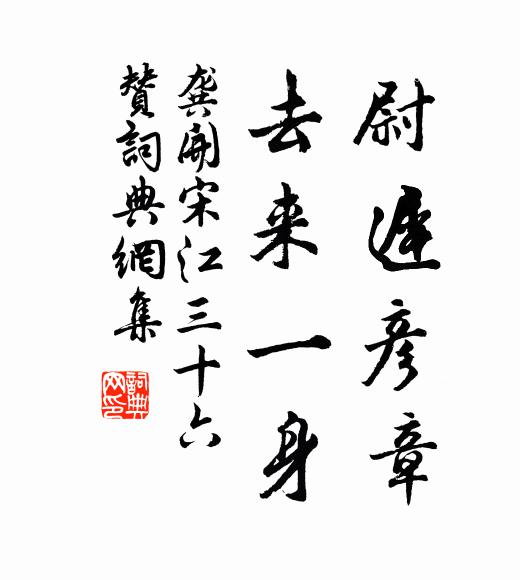 尉遲彦章
去来一身
龔開宋江三十六
贊詞典網集
詞典
网印